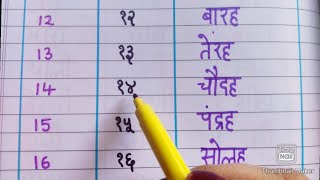 12 १२ बारह
13 १३ तेरह
14 १४ चौदह
15 १५ पंद्रह
16 १६ सोलह